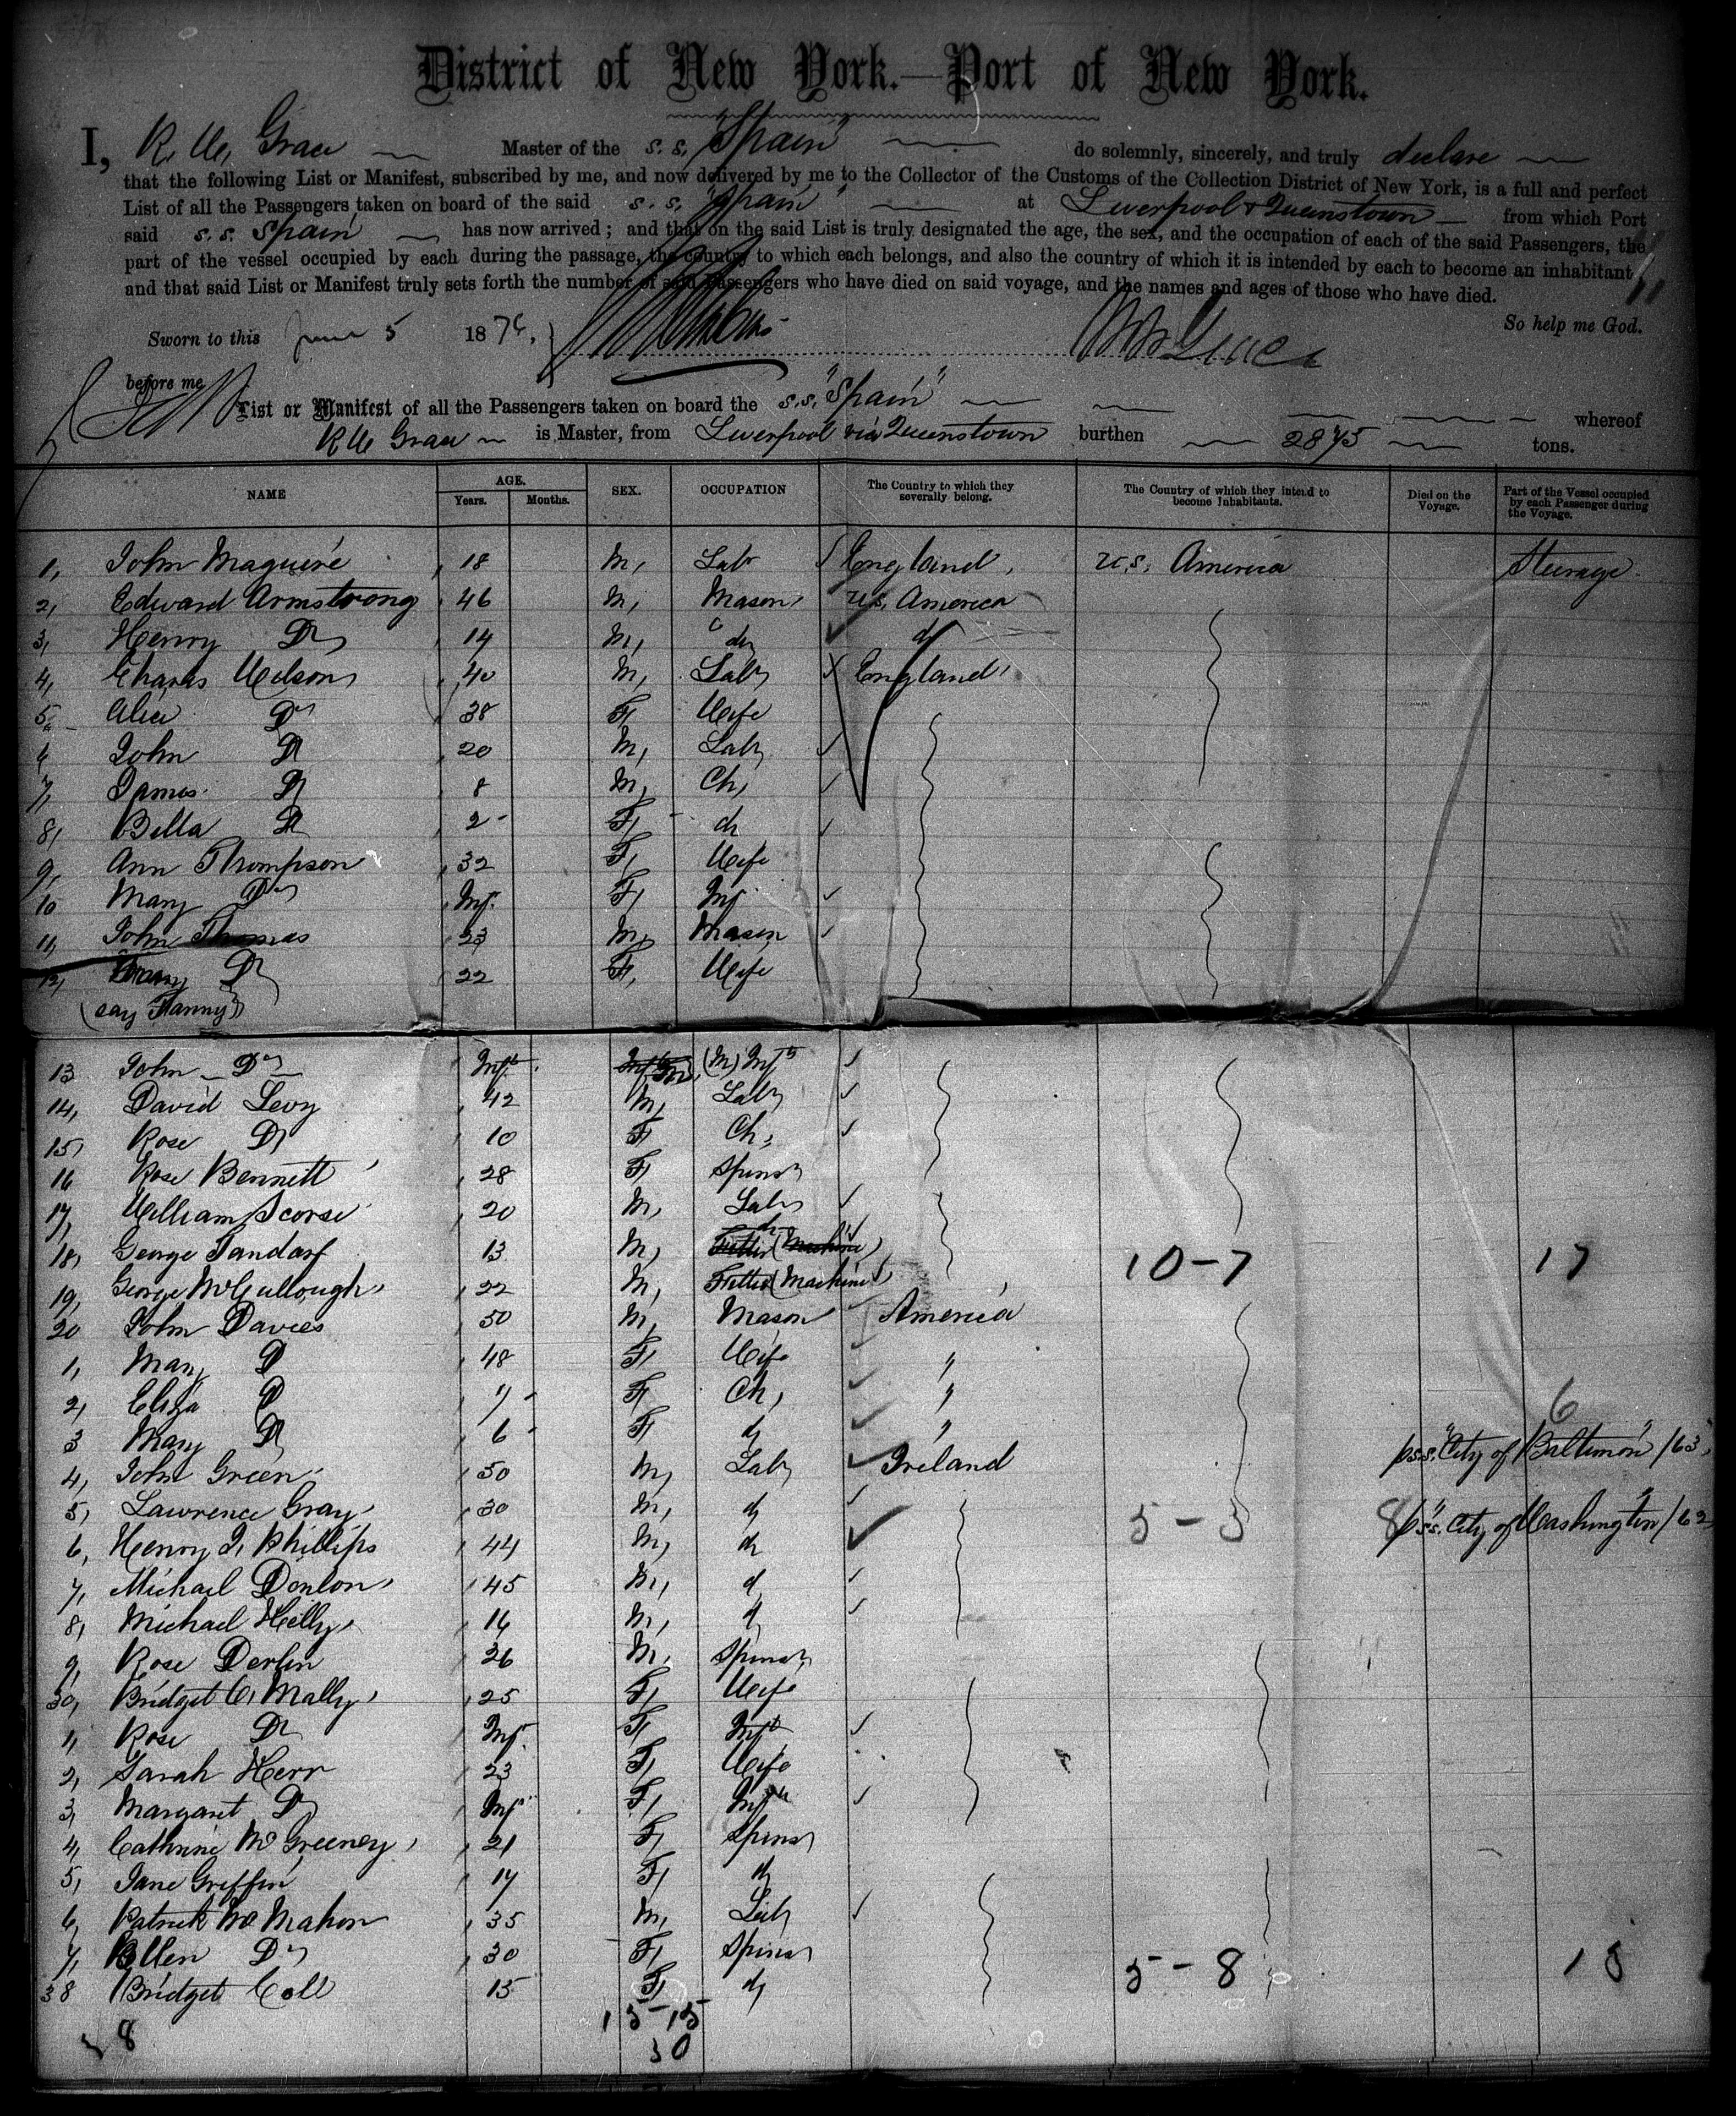 District of New York.—Port of New York.
I, R. W. Grace Master of the s.s. "Spain" do solemnly, sincerely, and truly declare
that the following List or Manifest, subscribed by me, and now delivered by me to the Collector of the Customs of the Collection District of New York, is a full and perfect
List of all the Passengers taken on board of the said s.s. "Spain" at Liverpool & Queenstown from which Port
said s.s. Spain has now arrived; and that on the said List is truly designated the age, the sex, and the occupation of each of the said Passengers, the
part of the vessel occupied by each during the passage, the country to which each belongs, and also the country of which it is intended by each to become an inhabitant
and that said List or Manifest truly sets forth the number of said Passengers who have died on said voyage, and the names and ages of those who have died.
So help me God.
Sworn to this June 5 1876, R W Grace
before me
List or Manifest of all the Passengers taken on board the s.s. "Spain" whereof
R W Grace is Master, from Liverpool via Queenstown burthen 2875 tons.
NAME AGE. Years. Months. SEX. OCCUPATION The Country to which they severally belong. The Country of which they intend to become Inhabitants. Died on the Voyage. Part of the Vessel occupied by each Passenger during the Voyage.
1, John Maguire 18 M, Lab England, U.S. America Steerage
2, Edward Armstrong 46 M, Mason, U.S. America
3, Henry Do 14 M, do do
4, Charles Wilson 40 M, Labr England
5, Alice Do 38 F, Wife
6 John Do 20 M, Labr
7, James Do 8 M, Ch,
8, Bella Do 2 F, do
9, Ann Thompson 32 F, Wife
10 Mary Do Inf. F, Inf
11, John Thomas 23 M, Mason
12, Do 22 F, Wife
(say Fanny)
13 John Do Inft (M) Inft
14, David Levy 42 M, Labr
15, Rose Do 10 F, Ch,
16 Rose Bennett 28 F, Spinsr
17, William Scorse 20 M, Labr
18, George 13 M, do 10-7 17
19, George McCullough 22 M, Fitter (Machine)
20 John Davies 50 M, Mason America
1, Mary D 48 F, Wife "
2, Eliza D 7 F, Ch, "
3 Mary Do 6 F, do " 6
4, John Green 50 M, Labr Ireland p s.s. "City of Baltimore" /63
5, Lawrence Gray 30 M, do 5-3 8
6, Henry J. Phillips 44 M, do p s.s. "City of Washington" /62
7, Michael Donlon 45 M, do
8, Michael Kelly 16 M, do
9, Rose Derlin 26 M, Spinsr
30, Bridget O'Mally 25 F, Wife
1, Rose Do Inf. F, Inft
2, Sarah Kerr 23 F, Wife
3, Margaret Do Inf F, Inft
4, Cathrine McGreeney 21 F, Spinsr
5, Jane Griffin 17 F, do
6, Patrick McMahon 35 M, Labr
7, Ellen Do 30 F, Spinsr 5-8 13
38 Bridget Coll 15 F, do
15-15
38 30